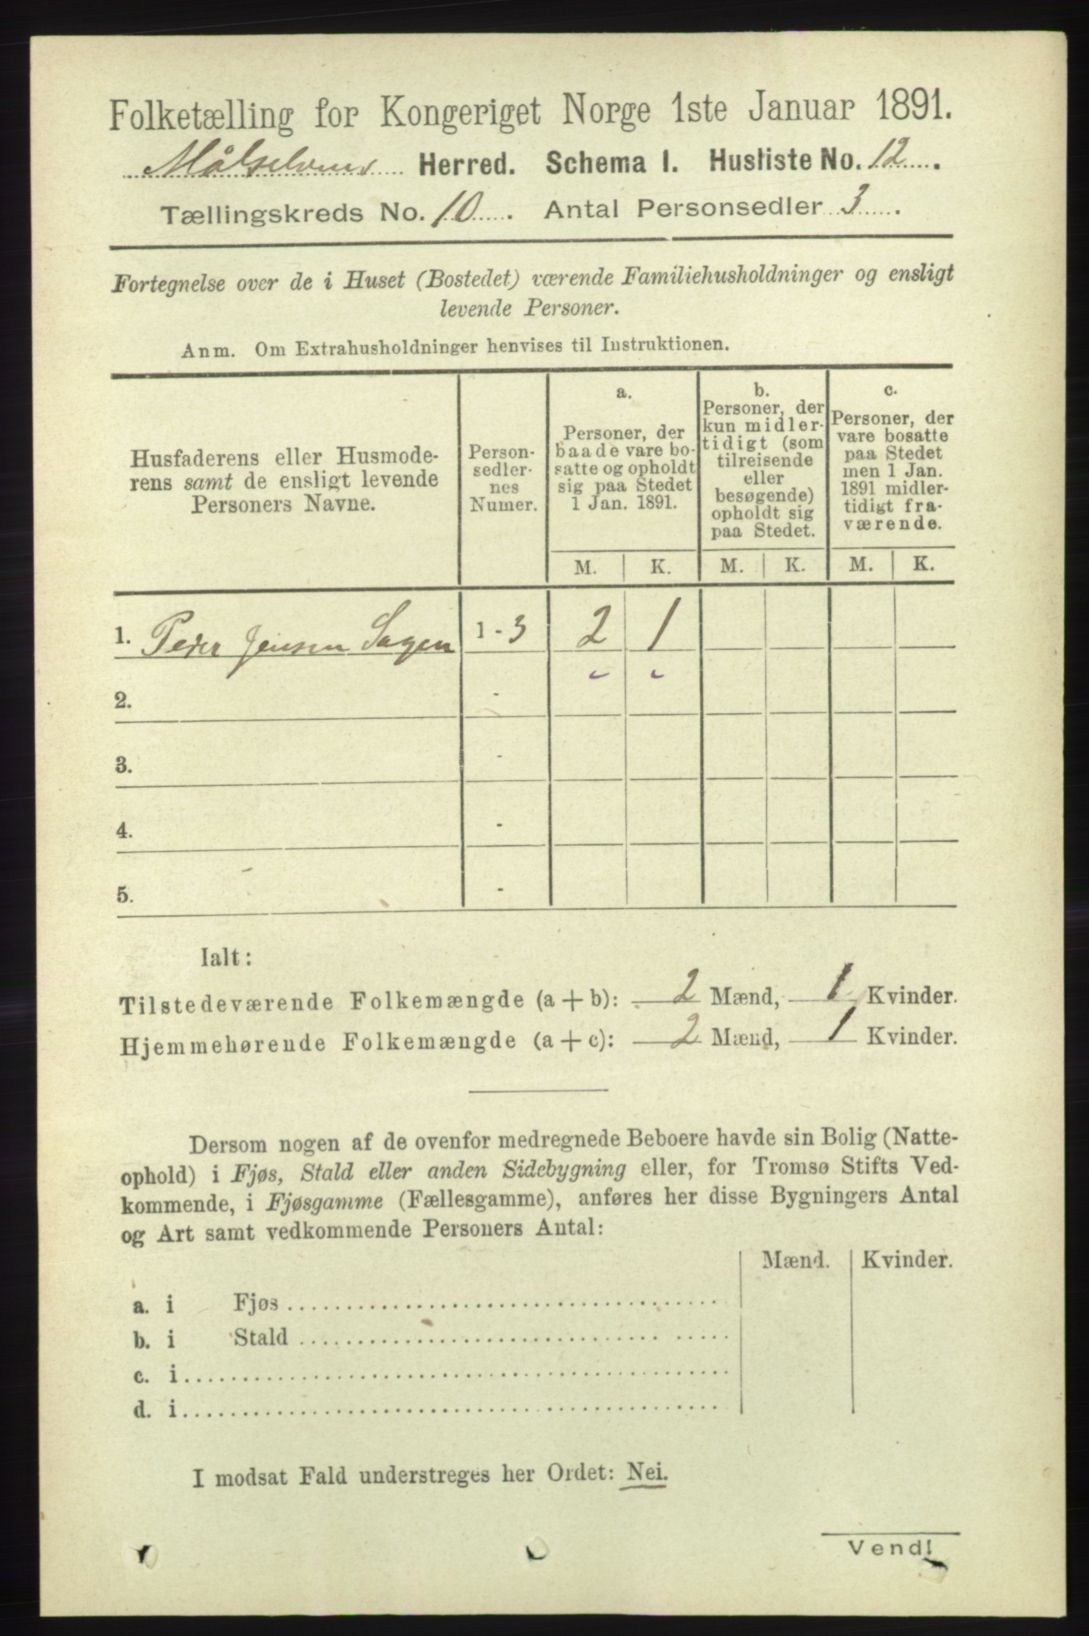 Folketælling for Kongeriget Norge 1ste Januar 1891.
Målselvens Herred. Schema I. Husliste No. 12.
Tællingskreds No. 10. Antal Personsedler 3.
Fortegnelse over de i Huset (Bostedet) værende Familiehusholdninger og ensligt
levende Personer.
Anm. Om Extrahusholdninger henvises til Instruktionen.
Husfaderens eller Husmode-
rens samt de ensligt levende
Personers Navne.
Person-
sedler-
nes
Numer.
a.
Personer, der
baade vare bo-
satte og opholdt
sig paa Stedet
1 Jan. 1891.
b.
Personer, der
kun midler-
tidigt (som
tilreisende
eller
besøgende)
opholdt sig
paa Stedet.
c.
Personer, der
vare bosatte
paa Stedet
men 1 Jan.
1891 midler-
tidigt fra-
værende.
M. K. M. K. M. K.
1. Peder Jensen Sagen 1 - 3 2 1
2. -
3. -
4. -
5. -
Ialt:
Tilstedeværende Folkemængde (a + b): 2 Mænd, 1 Kvinder.
Hjemmehørende Folkemængde (a + c): 2 Mænd, 1 Kvinder.
Dersom nogen af de ovenfor medregnede Beboere havde sin Bolig (Natte-
ophold) i Fjøs, Stald eller anden Sidebygning eller, for Tromsø Stifts Ved-
kommende, i Fjøsgamme (Fællesgamme), anføres her disse Bygningers Antal
og Art samt vedkommende Personers Antal:
Mænd. Kvinder.
a. i Fjøs
b. i Stald
c. i
d. i
I modsat Fald understreges her Ordet: Nei.
Vend!